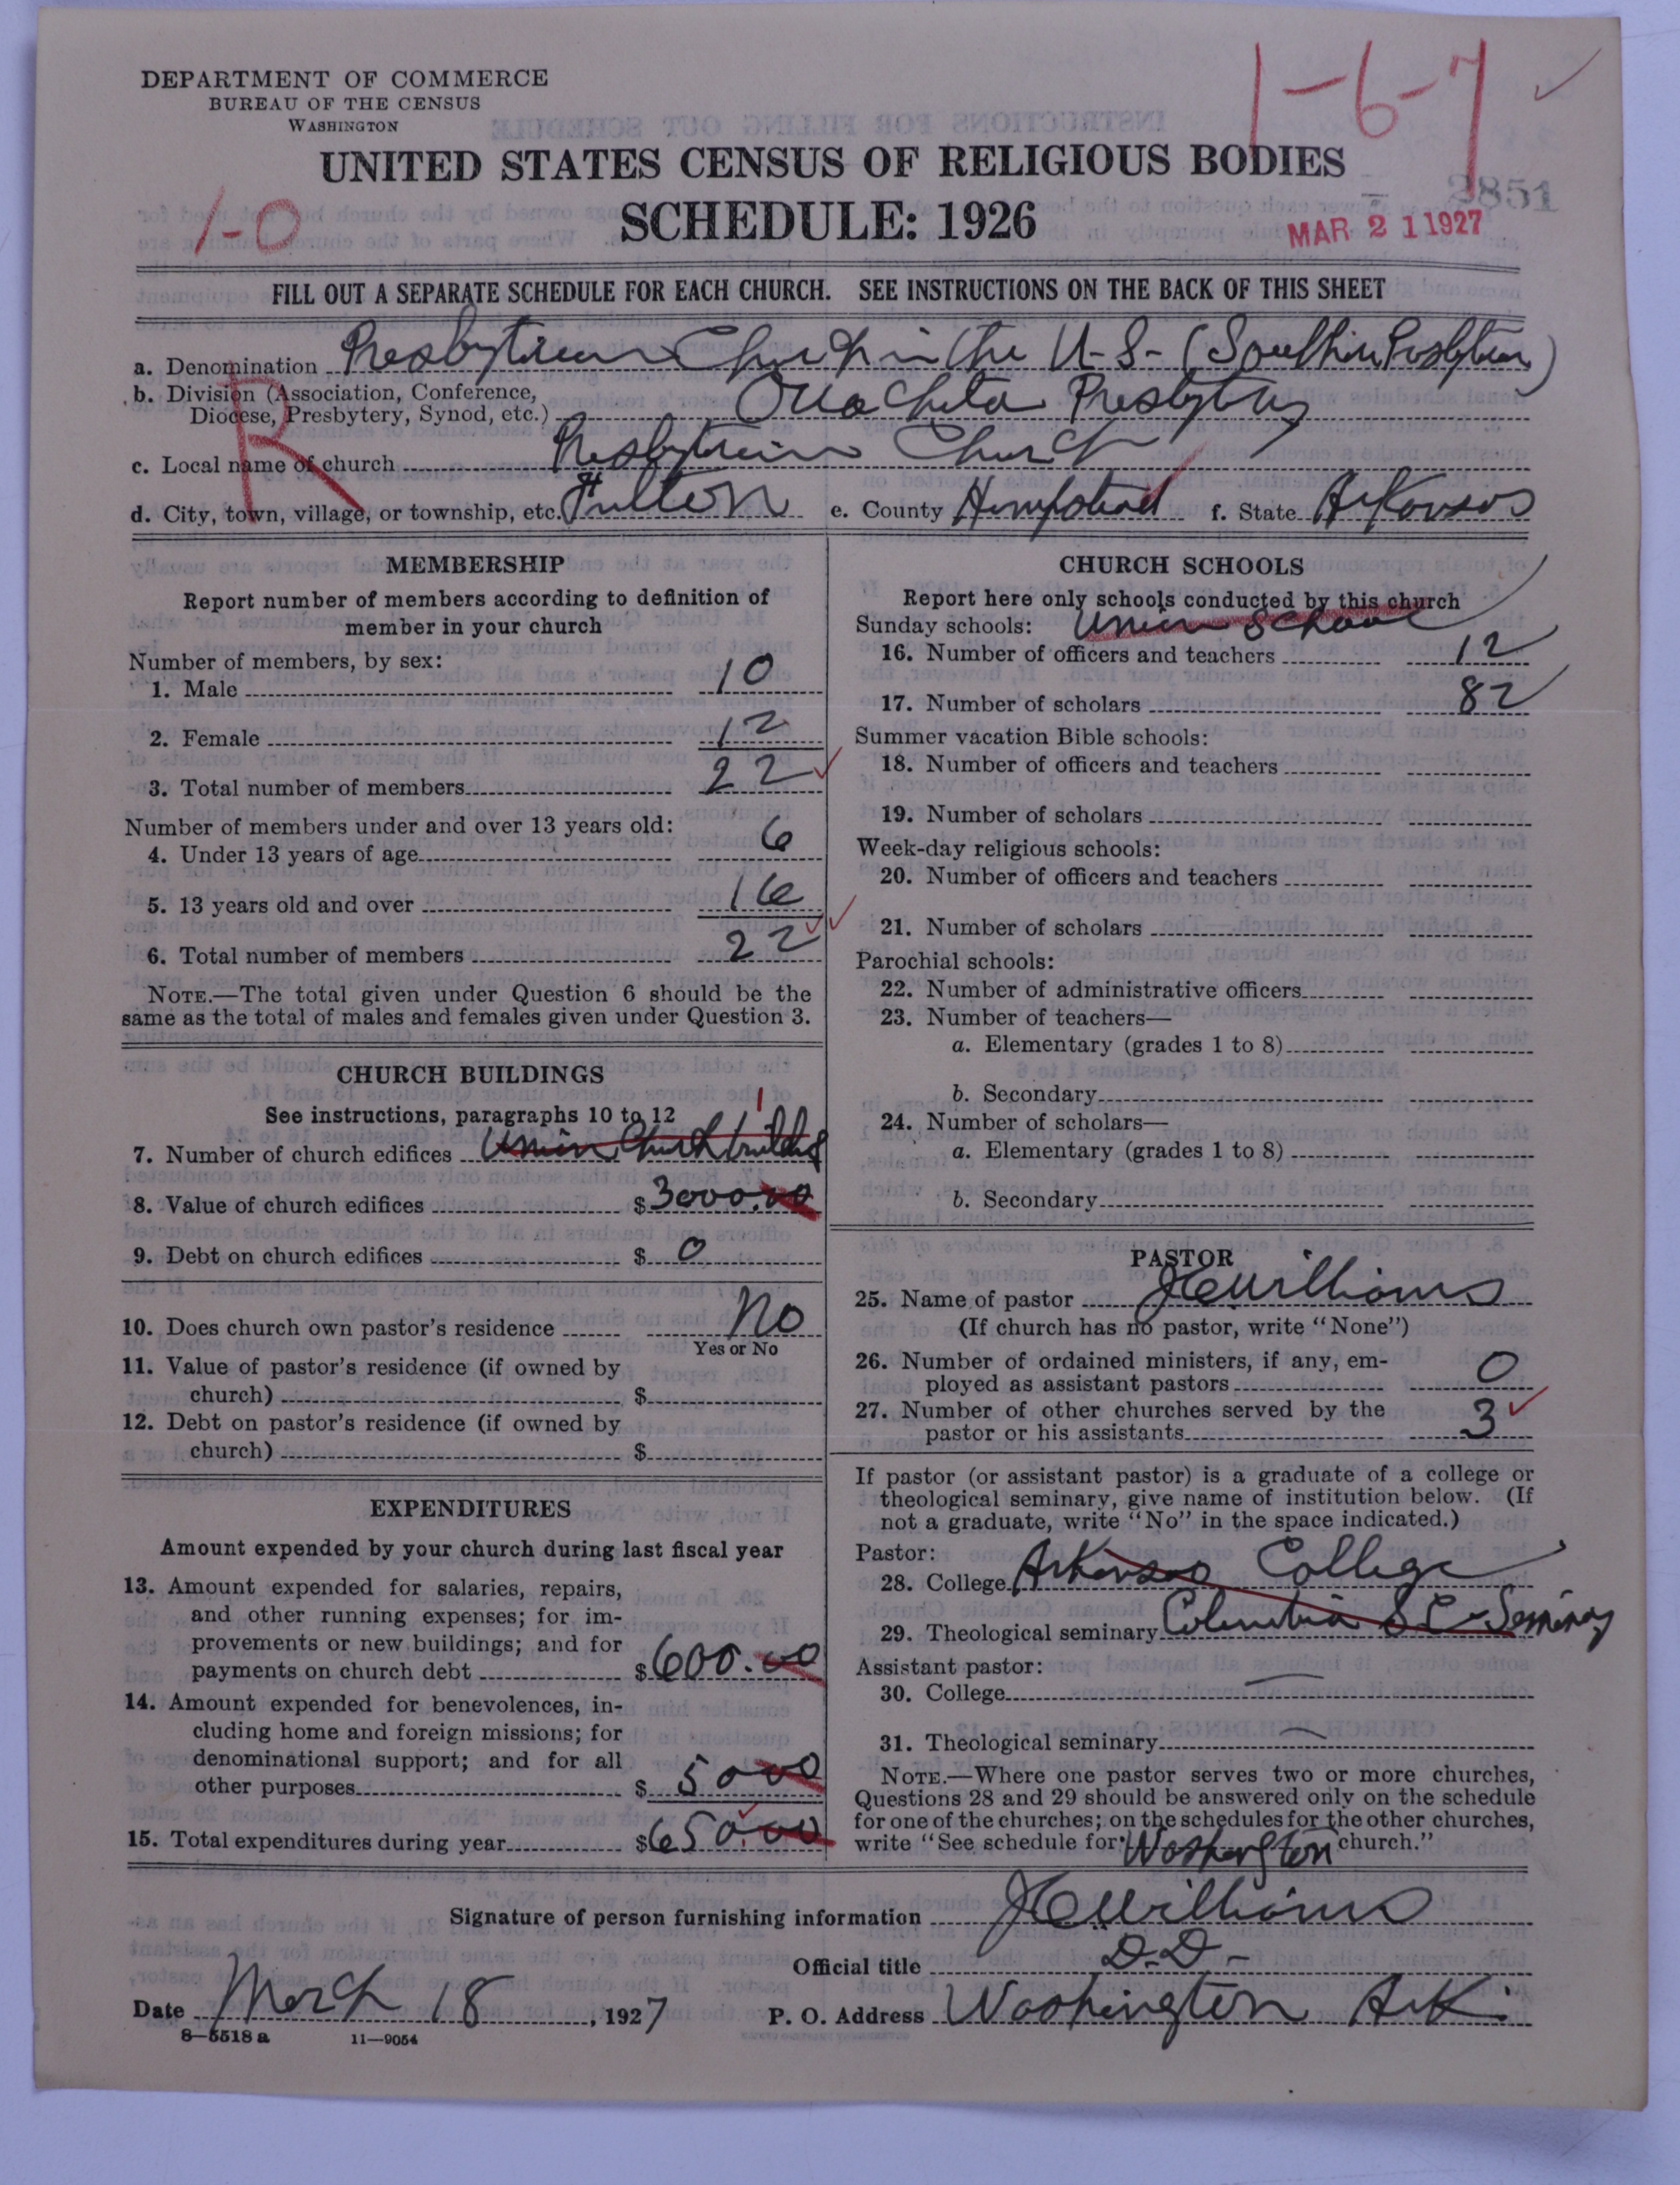 DEPARTMENT OF COMMERCE
BUREAU OF THE CENSUS
WASHINGTON
1-6-7
UNITED STATES CENSUS OF RELIGIOUS BODIES
1-0
SCHEDULE: 1926
3851
MAR 21 1927
FILL OUT A SEPARATE SCHEDULE FOR EACH CHURCH. SEE INSTRUCTIONS ON THE BACK OF THIS SHEET
a. Denomination Presbyterian Church in the U-S- (Southern Presbyterian)
b. Division (Association, Conference,
Diocese, Presbytery, Synod, etc.) Ouachita Presbytery
R
c. Local name of church Presbyterian Church
d. City, town, village, or township, etc. Fulton e. County Hempstead f. State Arkansas
MEMBERSHIP
Report number of members according to definition of
member in your church
Number of members, by sex:
1. Male 10
2. Female 12
3. Total number of members 22
Number of members under and over 13 years old:
4. Under 13 years of age 6
5. 13 years old and over 16
6. Total number of members 22
NOTE.—The total given under Question 6 should be the
same as the total of males and females given under Question 3.
CHURCH BUILDINGS
See instructions, paragraphs 10 to 12
1
7. Number of church edifices Union Church building
8. Value of church edifices $3000.00
9. Debt on church edifices $ 0
10. Does church own pastor's residence No
Yes or No
11. Value of pastor's residence (if owned by
church) $
12. Debt on pastor's residence (if owned by
church) $
EXPENDITURES
Amount expended by your church during last fiscal year
13. Amount expended for salaries, repairs,
and other running expenses; for im-
provements or new buildings; and for
payments on church debt $600.00
14. Amount expended for benevolences, in-
cluding home and foreign missions; for
denominational support; and for all
other purposes $ 5000
15. Total expenditures during year $650.00
CHURCH SCHOOLS
Report here only schools conducted by this church
Sunday schools: Union School
16. Number of officers and teachers 12
17. Number of scholars 82
Summer vacation Bible schools:
18. Number of officers and teachers
19. Number of scholars
Week-day religious schools:
20. Number of officers and teachers
21. Number of scholars
Parochial schools:
22. Number of administrative officers
23. Number of teachers—
a. Elementary (grades 1 to 8)
b. Secondary
24. Number of scholars—
a. Elementary (grades 1 to 8)
b. Secondary
PASTOR
25. Name of pastor J C Williams
(If church has no pastor, write "None")
26. Number of ordained ministers, if any, em-
ployed as assistant pastors 0
27. Number of other churches served by the
pastor or his assistants 3
If pastor (or assistant pastor) is a graduate of a college or
theological seminary, give name of institution below. (If
not a graduate, write "No" in the space indicated.)
Pastor:
28. College Arkansas College
29. Theological seminary Columbia S C - Seminary
Assistant pastor:
30. College —
31. Theological seminary —
NOTE.—Where one pastor serves two or more churches,
Questions 28 and 29 should be answered only on the schedule
for one of the churches; on the schedules for the other churches,
write "See schedule for Washington church."
Signature of person furnishing information J C Williams
Official title D.D-
Date March 18, 1927 P. O. Address Washington Ark.
8—5518 a 11—9054